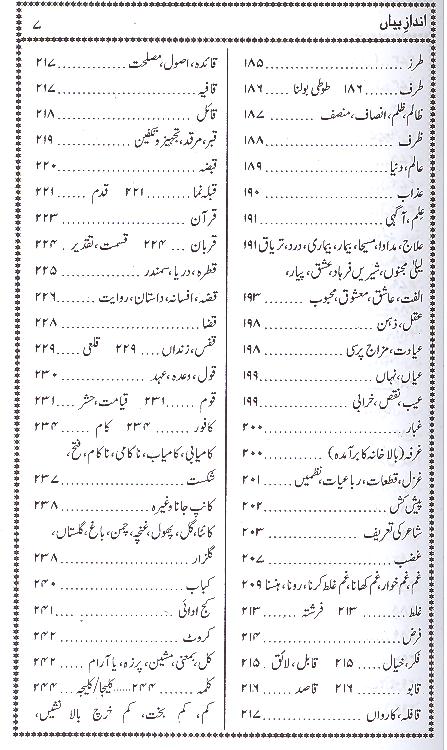 اندازِ بیاں ۷
طرز ........ ۱۸۵
طرف ........ ۱۸۶ طوطی بولنا ۱۸۶
ظالم، ظلم، انصاف، منصف ........ ۱۸۷
ظرف ........ ۱۸۸
عالم، دنیا ........ ۱۸۹
عذاب ........ ۱۹۰
عِلم، آگہی ........ ۱۹۱
علاج، مداوا، مسیحا، بیمار، بیماری، درد، تریاق ۱۹۱
لیلیٰ مجنوں، شیریں فرہاد، عشق، پیار،
الفت، عاشق، معشوق، محبوب ........ ۱۹۳
عقل، ذہن ........ ۱۹۸
عیادت، مزاج پرسی ........ ۱۹۸
عیاں، نہاں ........ ۱۹۹
عیب، نقص، خرابی ........ ۱۹۹
غبار ........ ۲۰۰
غرفہ (بالا خانہ کا برآمدہ) ........ ۲۰۰
غزل، قطعات، رباعیات، نظمیں ........ ۲۰۱
پیش کش ........ ۲۰۲
شاعر کی تعریف ........ ۲۰۳
غضب ........ ۲۰۷
غم، غم خوار، غم کھانا، غم غلط کرنا، رونا، ہنسنا ۲۰۹
غلط ........ ۲۱۳ فرشتہ ........ ۲۱۳
فرض ........ ۲۱۴
فکر، خیال ........ ۲۱۵ قابل، لائق ۲۱۵
قابو ........ ۲۱۶ قاصد ........ ۲۱۶
قافلہ، کارواں ........ ۲۱۷
قائدہ، اصول، مصلحت ........ ۲۱۷
قافیہ ........ ۲۱۷
قائل ........ ۲۱۸
قبر، مرقد، تجہیز و تکفین ........ ۲۱۹
قبضہ ........ ۲۲۰
قبلہ نما ........ ۲۲۱ قدم ........ ۲۲۱
قرآن ........ ۲۲۳
قربان ........ ۲۲۴ قسمت، تقدیر ۲۲۴
قطرہ، دریا، سمندر ........ ۲۲۵
قصہ، افسانہ، داستان، روایت ........ ۲۲۶
قضا ........ ۲۲۸
قفس، زنداں ........ ۲۲۹ قلعی ........ ۲۲۹
قول، وعدہ، عہد ........ ۲۳۰
قوم ........ ۲۳۱ قیامت، حشر ........ ۲۳۱
کافور ........ ۲۳۴ کام ........ ۲۳۴
کامیابی، کامیاب، ناکامی، ناکام، فتح،
شکست ........ ۲۳۷
کانپ جانا وغیرہ ........ ۲۳۸
کانٹا، گل، پھول، غنچہ، چمن، باغ، گلستاں،
گلزار ........ ۲۳۸
کباب ........ ۲۴۰
کج ادائی ........ ۲۴۱
کروٹ ........ ۲۴۲
کل، بمعنی، مشین، پرزہ، یا آرام ........ ۲۴۲
کلمہ ........ ۲۴۴ کلیجا/کلیجہ ........ ۲۴۴
کم، کم بخت، کم خرچ بالا نشیں،